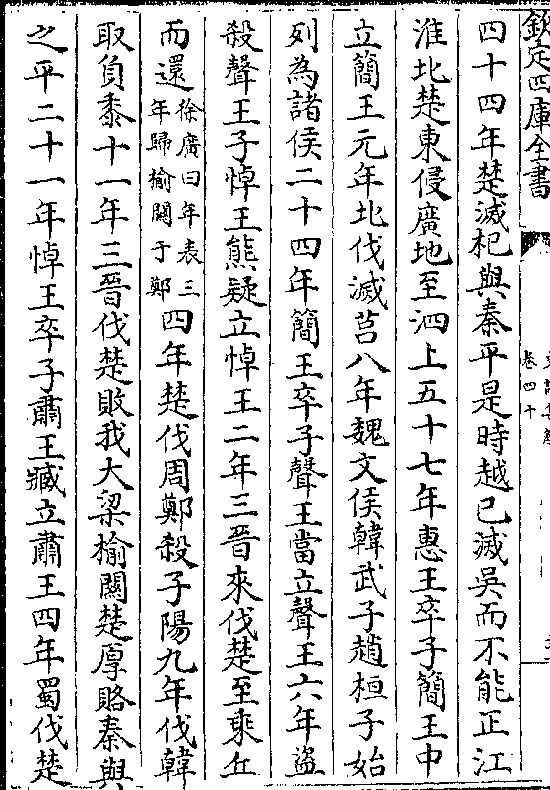 欽定四庫全書
卷四十
四十四年楚滅杞與秦平是時越已滅吳而不能正江
淮北楚東侵廣地至泗上五十七年惠王卒子簡王中
立簡王元年北伐滅莒八年魏文侯韓武子趙桓子始
列為諸侯二十四年簡王卒子聲王當立聲王六年盜
殺聲王子悼王熊疑立悼王二年三晉來伐楚至乘丘
而還徐廣曰年表三年歸榆關于鄭四年楚伐周鄭殺子陽九年伐韓
取負黍十一年三晉伐楚敗我大梁榆關楚厚賂秦與
之平二十一年悼王卒子肅王臧立肅王四年蜀伐楚